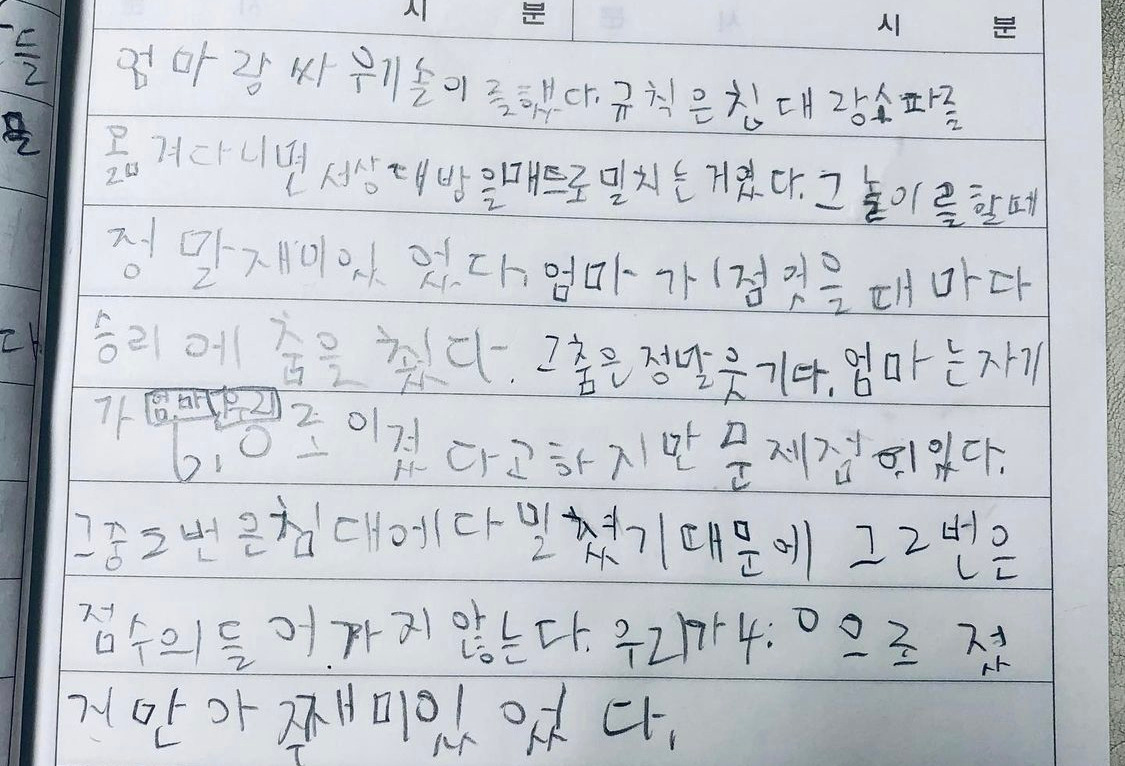 들
를
다
시 분 시 분
엄마랑 싸우기솔이를했다. 규칙은침대랑쇼파를
옮겨다니면서상대방을매트로밀치는거였다. 그놀이를할떼
정말재미있었다. 엄마가1점엇을때마다
승리에춤을췄다. 그춤은정말웃기다. 엄마는자기
가 엄마 우리 6:0으로이겼다고하지만문제점이있다.
그중2번은침대에다밀첬기때문에 그2번은
점수의들어가지않는다. 우리가4:0으로졌
건만아쭈재미있었다.